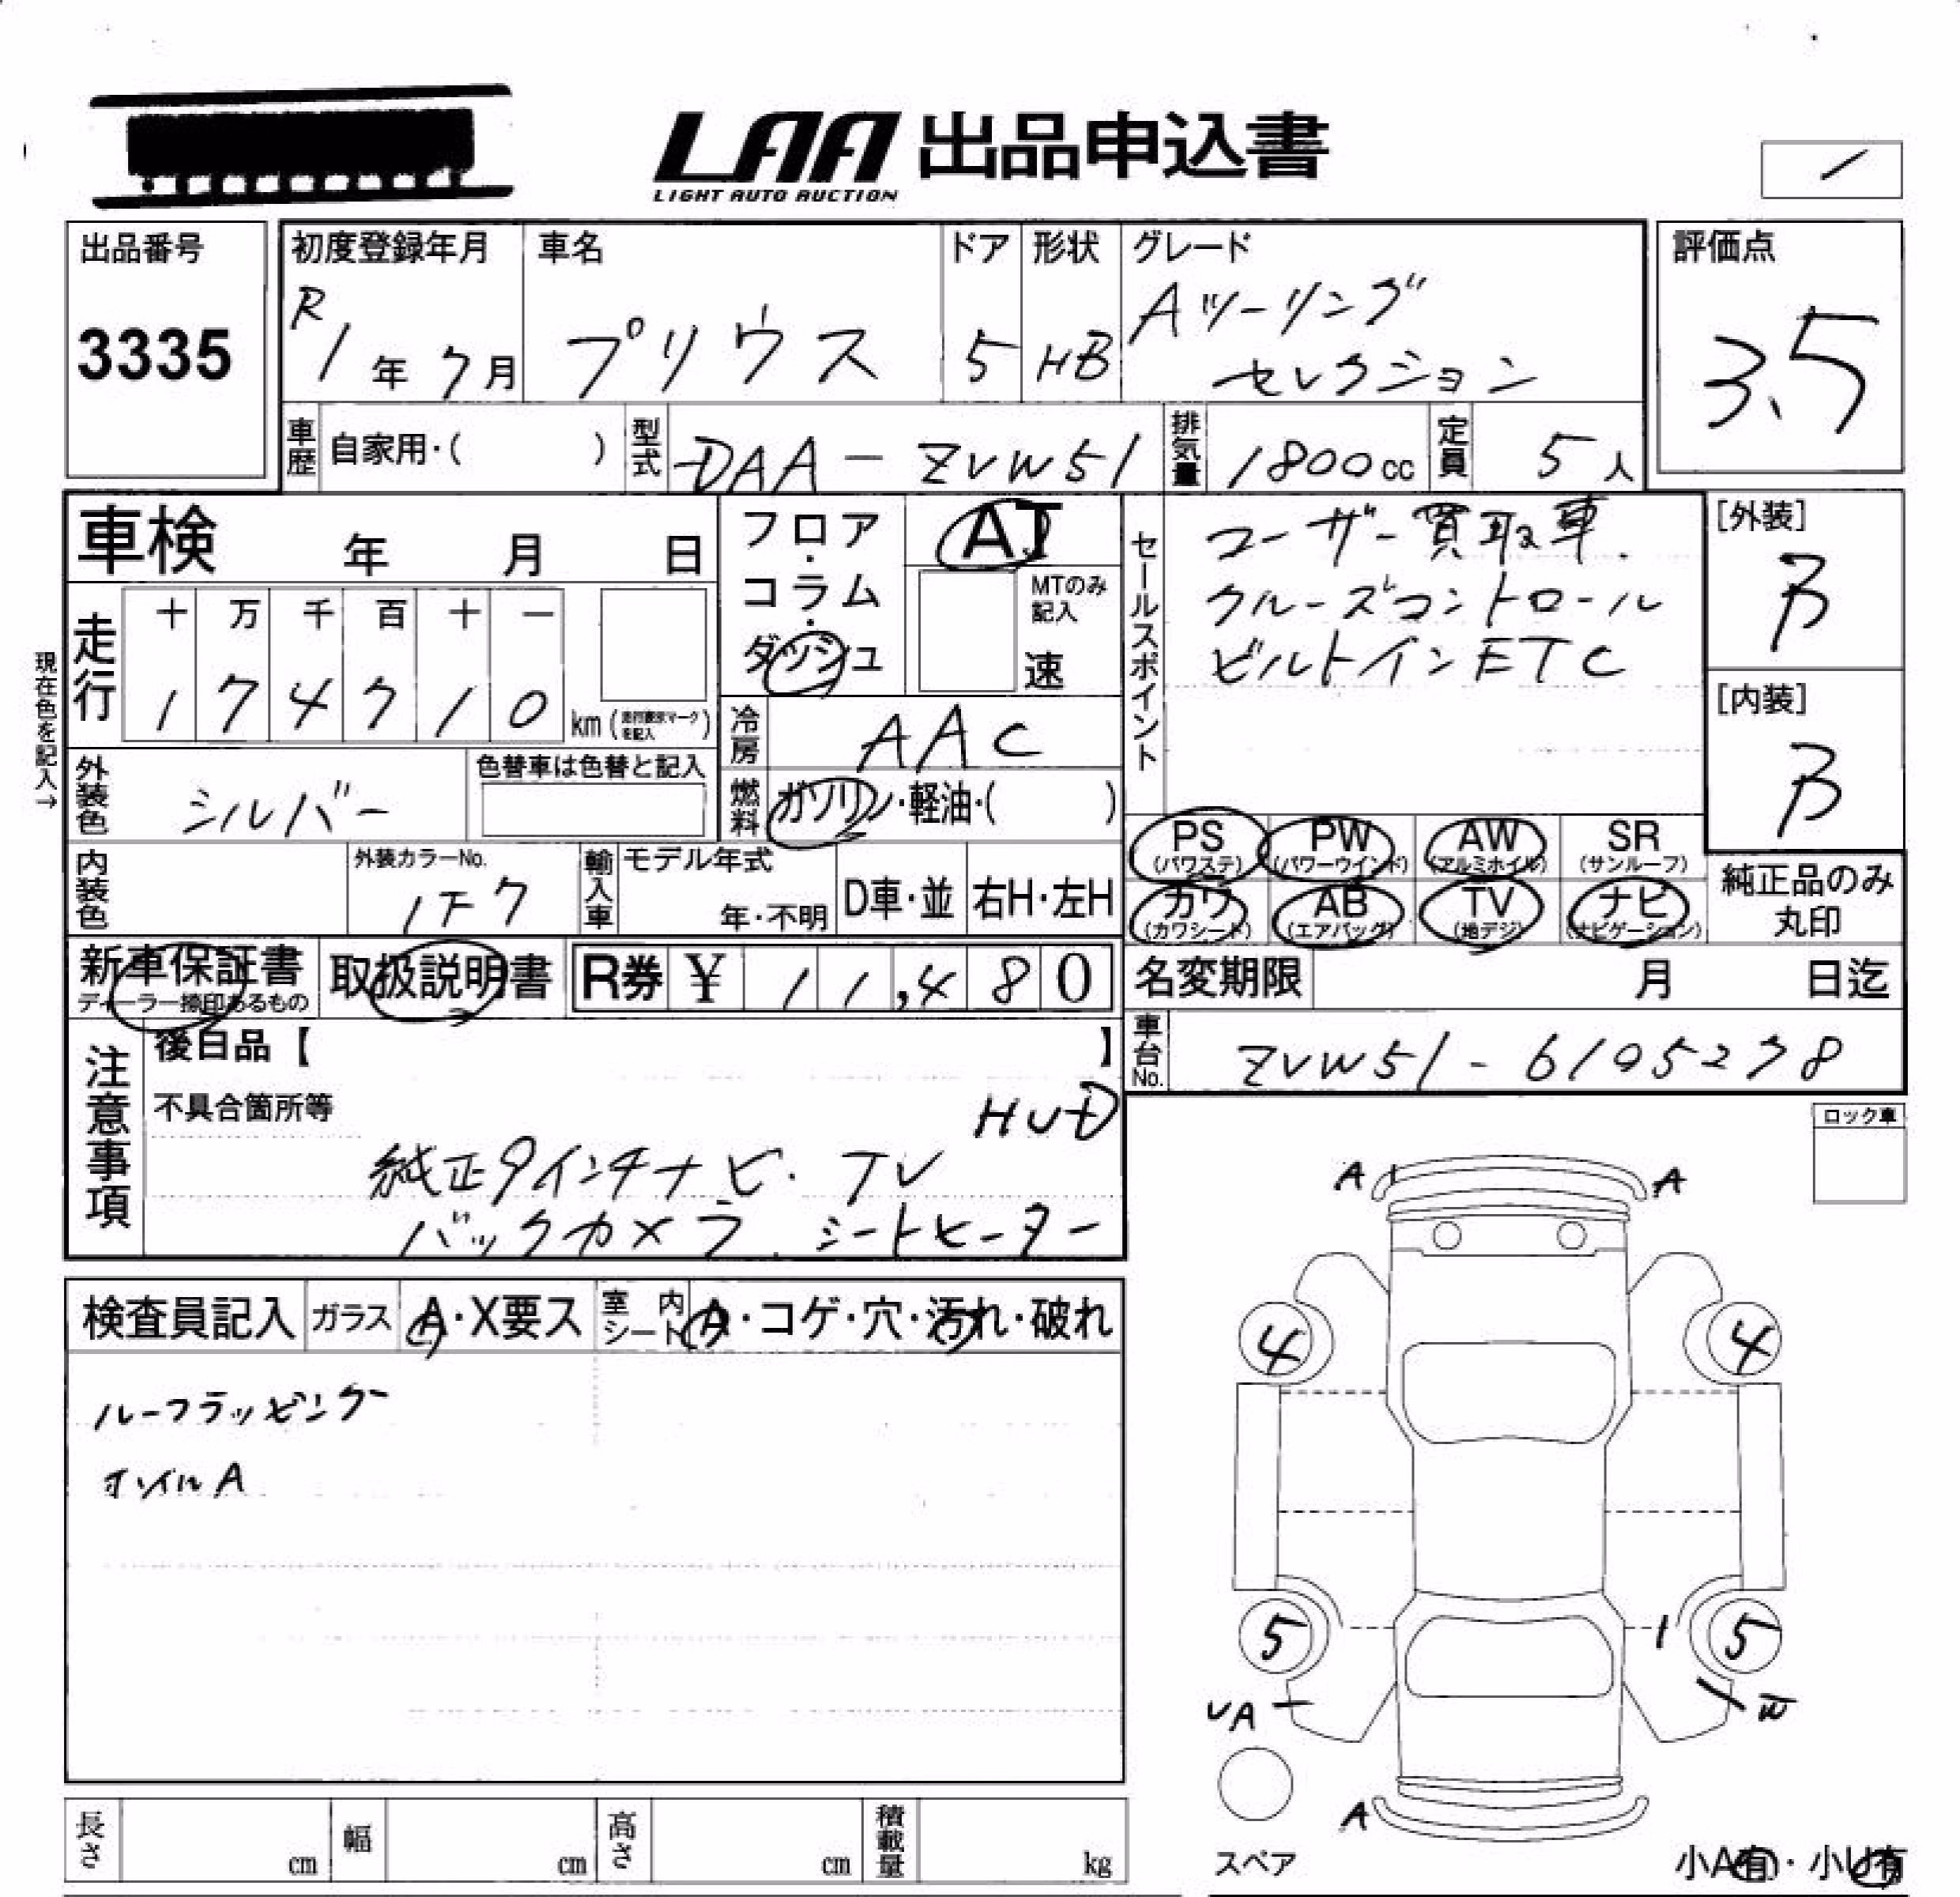 LAA 出品申込書
LIGHT AUTO AUCTION
出品番号
3335
初度登録年月
R1年7月
車名
プリウス
ドア
5
形状
HB
グレード
Aツーリング
セレクション
評価点
3.5
車歴 自家用・( )
型式 DAA-ZVW51
排気量 1800cc
定員 5人
車検 年 月 日
フロア・コラム・ダッシュ
AT
MTのみ記入
速
セールスポイント
ユーザー買取車.
クルーズコントロール
ビルトインETC
[外装]
B
[内装]
B
現在色を記入→
走行
十 万 千 百 十 一
1 7 4 7 1 0 km (走行表示マークを記入)
冷房 AAC
燃料 ガソリン・軽油・( )
外装色 シルバー
色替車は色替と記入
内装色
外装カラーNo.
1F7
輸入車
モデル年式
年・不明
D車・並
右H・左H
PS (パワステ)
PW (パワーウインド)
AW (アルミホイル)
SR (サンルーフ)
カワ (カワシート)
AB (エアバッグ)
TV (地デジ)
ナビ (ナビゲーション)
純正品のみ丸印
新車保証書
ディーラー捺印あるもの
取扱説明書
R券 ¥ 11,480
名変期限 月 日迄
車台No. ZVW51-6195278
注意事項
後日品【 】
不具合箇所等
HUD
純正9インチナビ. TV
バックカメラ. シートヒーター
ロック車
検査員記入
ガラス A・X要ス
室内シート A・コゲ・穴・汚れ・破れ
ルーフラッピング
オイルA
A A
4 4
5 5
UA
W
A
スペア
小A有・小U有
長さ cm
幅 cm
高さ cm
積載量 kg